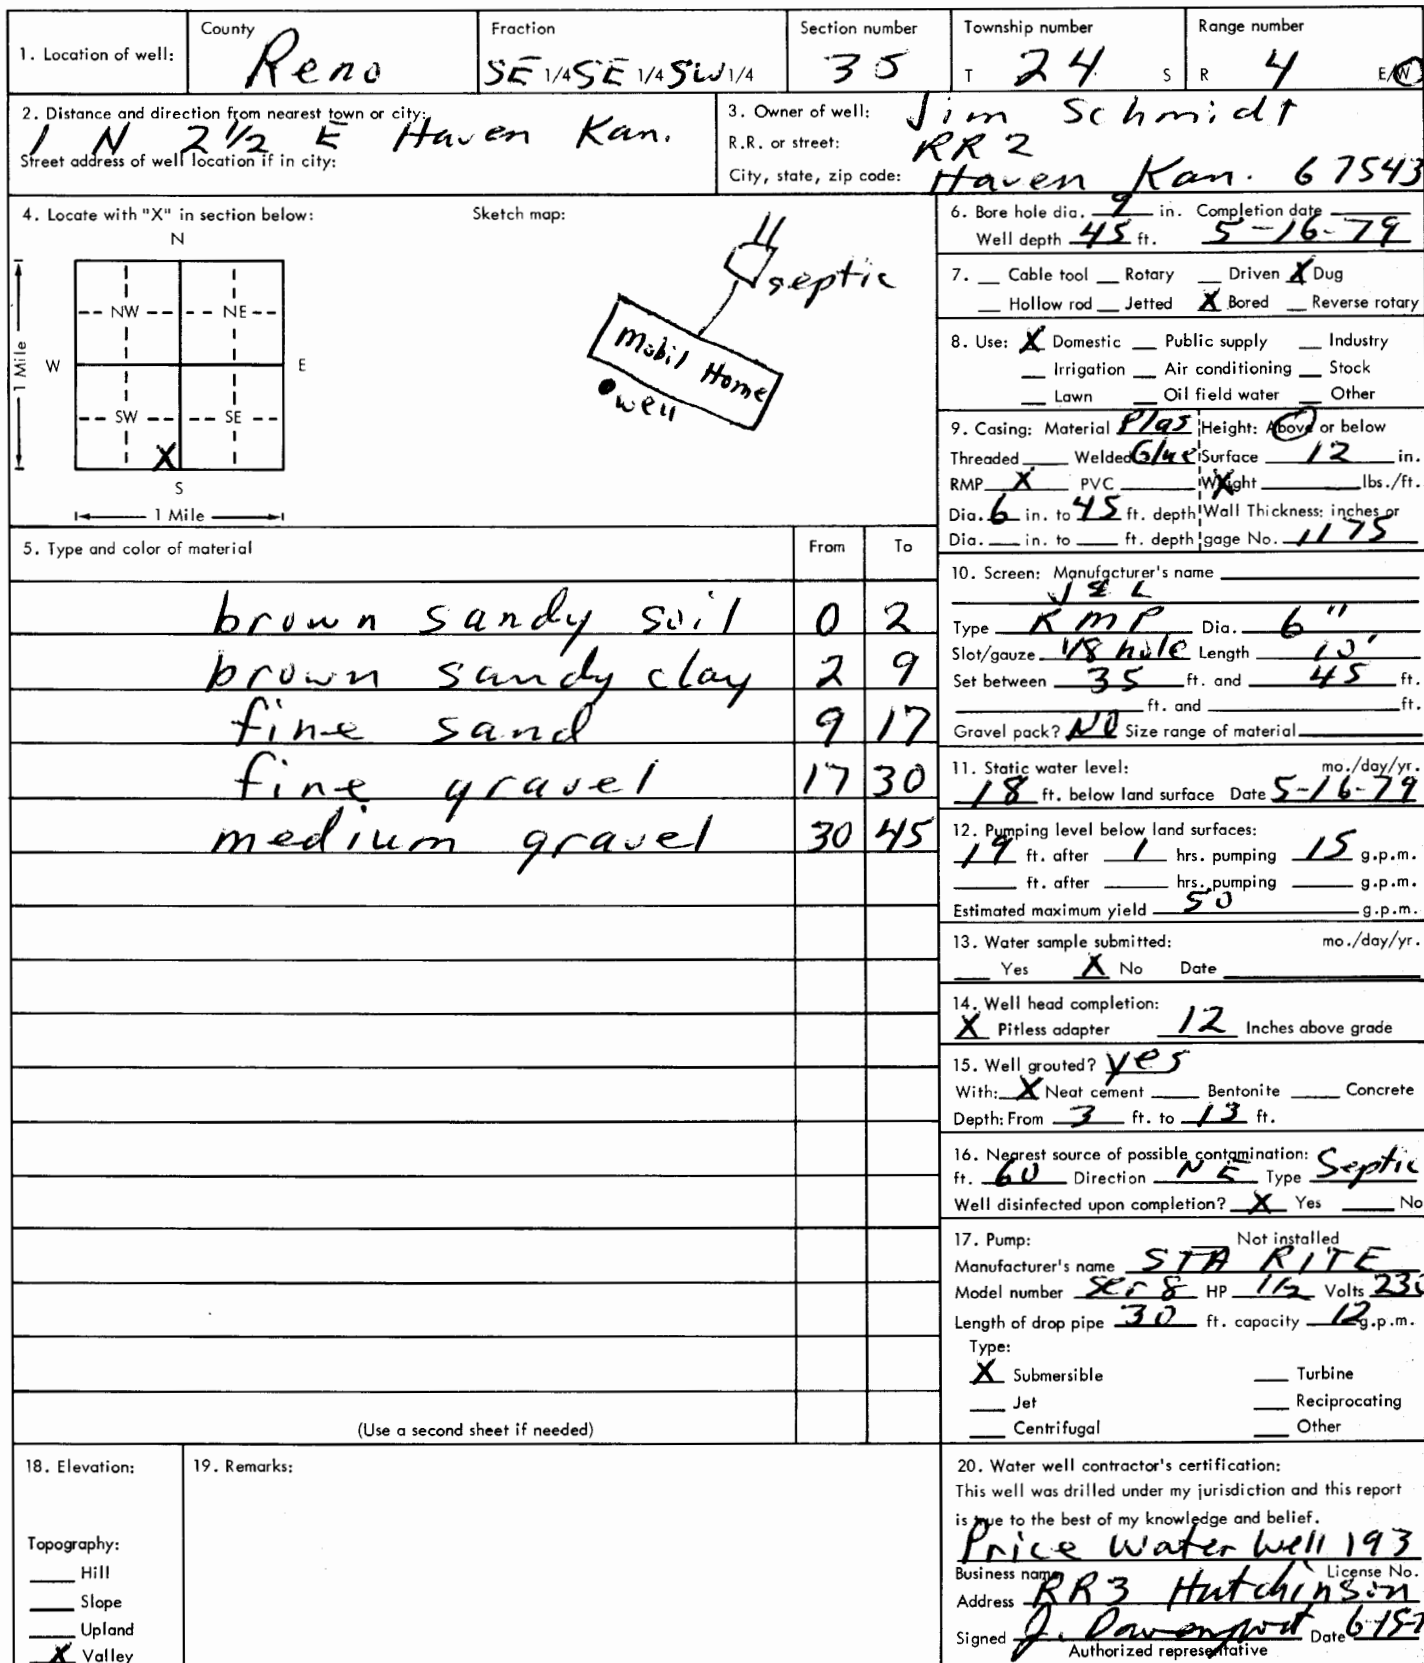 1. Location of well: County Reno Fraction SE 1/4 SE 1/4 SW 1/4 Section number 35 Township number T 24 S Range number R 4 E/W
2. Distance and direction from nearest town or city: 1 N 2 1/2 E Haven Kan.
Street address of well location if in city:
3. Owner of well: Jim Schmidt
R.R. or street: RR 2
City, state, zip code: Haven Kan. 67543
4. Locate with "X" in section below:
N
NW NE
W E
SW SE
X
S
1 Mile
1 Mile
Sketch map:
septic
Mobil Home
well
5. Type and color of material From To
brown sandy soil 0 2
brown sandy clay 2 9
fine sand 9 17
fine gravel 17 30
medium gravel 30 45
(Use a second sheet if needed)
6. Bore hole dia. 9 in. Completion date
Well depth 45 ft. 5-16-79
7. __ Cable tool __ Rotary __ Driven X Dug
__ Hollow rod __ Jetted X Bored __ Reverse rotary
8. Use: X Domestic __ Public supply __ Industry
__ Irrigation __ Air conditioning __ Stock
__ Lawn __ Oil field water __ Other
9. Casing: Material Plas Height: Above or below
Threaded __ Welded Glue Surface 12 in.
RMP X PVC __ Weight __ lbs./ft.
Dia. 6 in. to 45 ft. depth Wall Thickness: inches or
Dia. __ in. to __ ft. depth gage No. 1175
10. Screen: Manufacturer's name
J & L
Type RMP Dia. 6"
Slot/gauze 1/8 hole Length 10'
Set between 35 ft. and 45 ft.
__ ft. and __ ft.
Gravel pack? NO Size range of material
11. Static water level: mo./day/yr.
18 ft. below land surface Date 5-16-79
12. Pumping level below land surfaces:
19 ft. after 1 hrs. pumping 15 g.p.m.
__ ft. after __ hrs. pumping __ g.p.m.
Estimated maximum yield 50 g.p.m.
13. Water sample submitted: mo./day/yr.
__ Yes X No Date
14. Well head completion:
X Pitless adapter 12 Inches above grade
15. Well grouted? yes
With: X Neat cement __ Bentonite __ Concrete
Depth: From 3 ft. to 13 ft.
16. Nearest source of possible contamination:
ft. 60 Direction NE Type Septic
Well disinfected upon completion? X Yes __ No
17. Pump: __ Not installed
Manufacturer's name STA RITE
Model number Ser 8 HP 1/2 Volts 230
Length of drop pipe 30 ft. capacity 12 g.p.m.
Type:
X Submersible __ Turbine
__ Jet __ Reciprocating
__ Centrifugal __ Other
18. Elevation:
Topography:
__ Hill
__ Slope
__ Upland
X Valley
19. Remarks:
20. Water well contractor's certification:
This well was drilled under my jurisdiction and this report
is true to the best of my knowledge and belief.
Price Water Well 193
Business name License No.
Address RR3 Hutchinson
Signed J. Davenport Date
Authorized representative